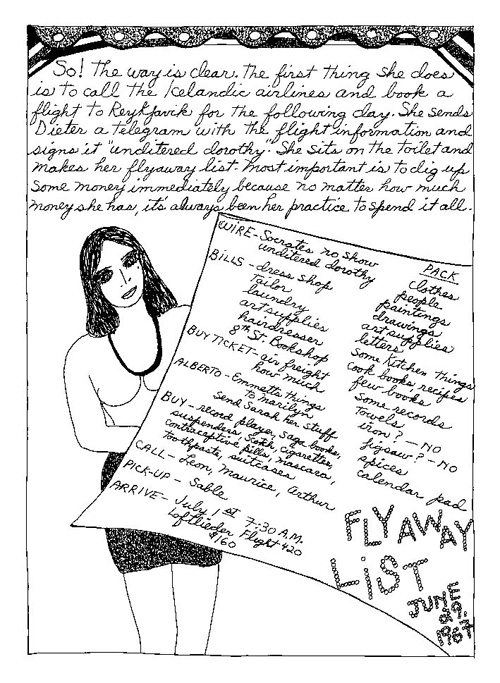 So! The way is clear. The first thing she does
is to call the Icelandic airlines and book a
flight to Reykjavik for the following day. She sends
Dieter a Telegram with the flight information and
signs it "unditered dorothy." She sits on the toilet and
makes her flyaway list. Most important is to dig up
some money immediately because no matter how much
money she has, it's always been her practice to spend it all.
WIRE - Socrates no show
unditered dorothy
BILLS - dress shop
Tailor
laundry
art supplies
hairdresser
8th St. Bookshop
BUY TICKET - air freight
how much
ALBERTO - Emmetts things
To marilyn
Send Sarah her stuff
BUY - record player, saga books,
suspenders, Scotch, cigarettes,
Contraceptive pills, mascara,
Toothpaste, suitcases
CALL - Leon, Maurice, Arthur
PICK-UP - Sable
ARRIVE - July 1st 7:30 A.M.
Loftlieder Flight 420
$160
PACK
Clothes
people
paintings
drawings
art supplies
letters
Some Kitchen things
Cook books, recipes
few books
Some records
Towels
iron? - NO
jigsaw? - NO
spices
calendar pad
FLYAWAY
LIST
JUNE 19th
of
1967